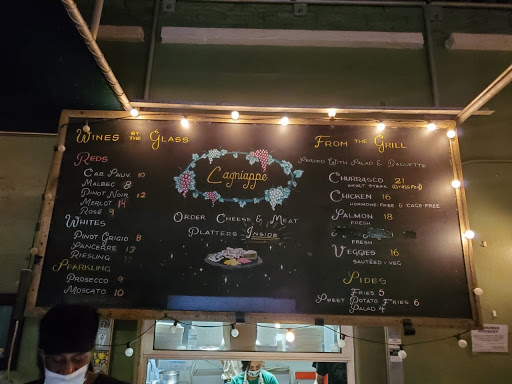 Wines by the Glass
Reds
Cab Sauv 10
Malbec 8
Pinot Noir 12
Merlot 14
Rose 9
Whites
Pinot Grigio 8
Sancerre 13
Riesling
Sparkling
Prosecco 9
Moscato 10
Lagniappe
Order Cheese & Meat
Platters Inside
From the Grill
Served With Salad & Baguette
Churrasco 21
Skirt Steak
Chicken 16
Hormone Free & Cage-Free
Salmon 18
Fresh
Fresh
Veggies 16
Sautéed - Veg
Sides
Fries 5
Sweet Potato Fries 6
Salad 4